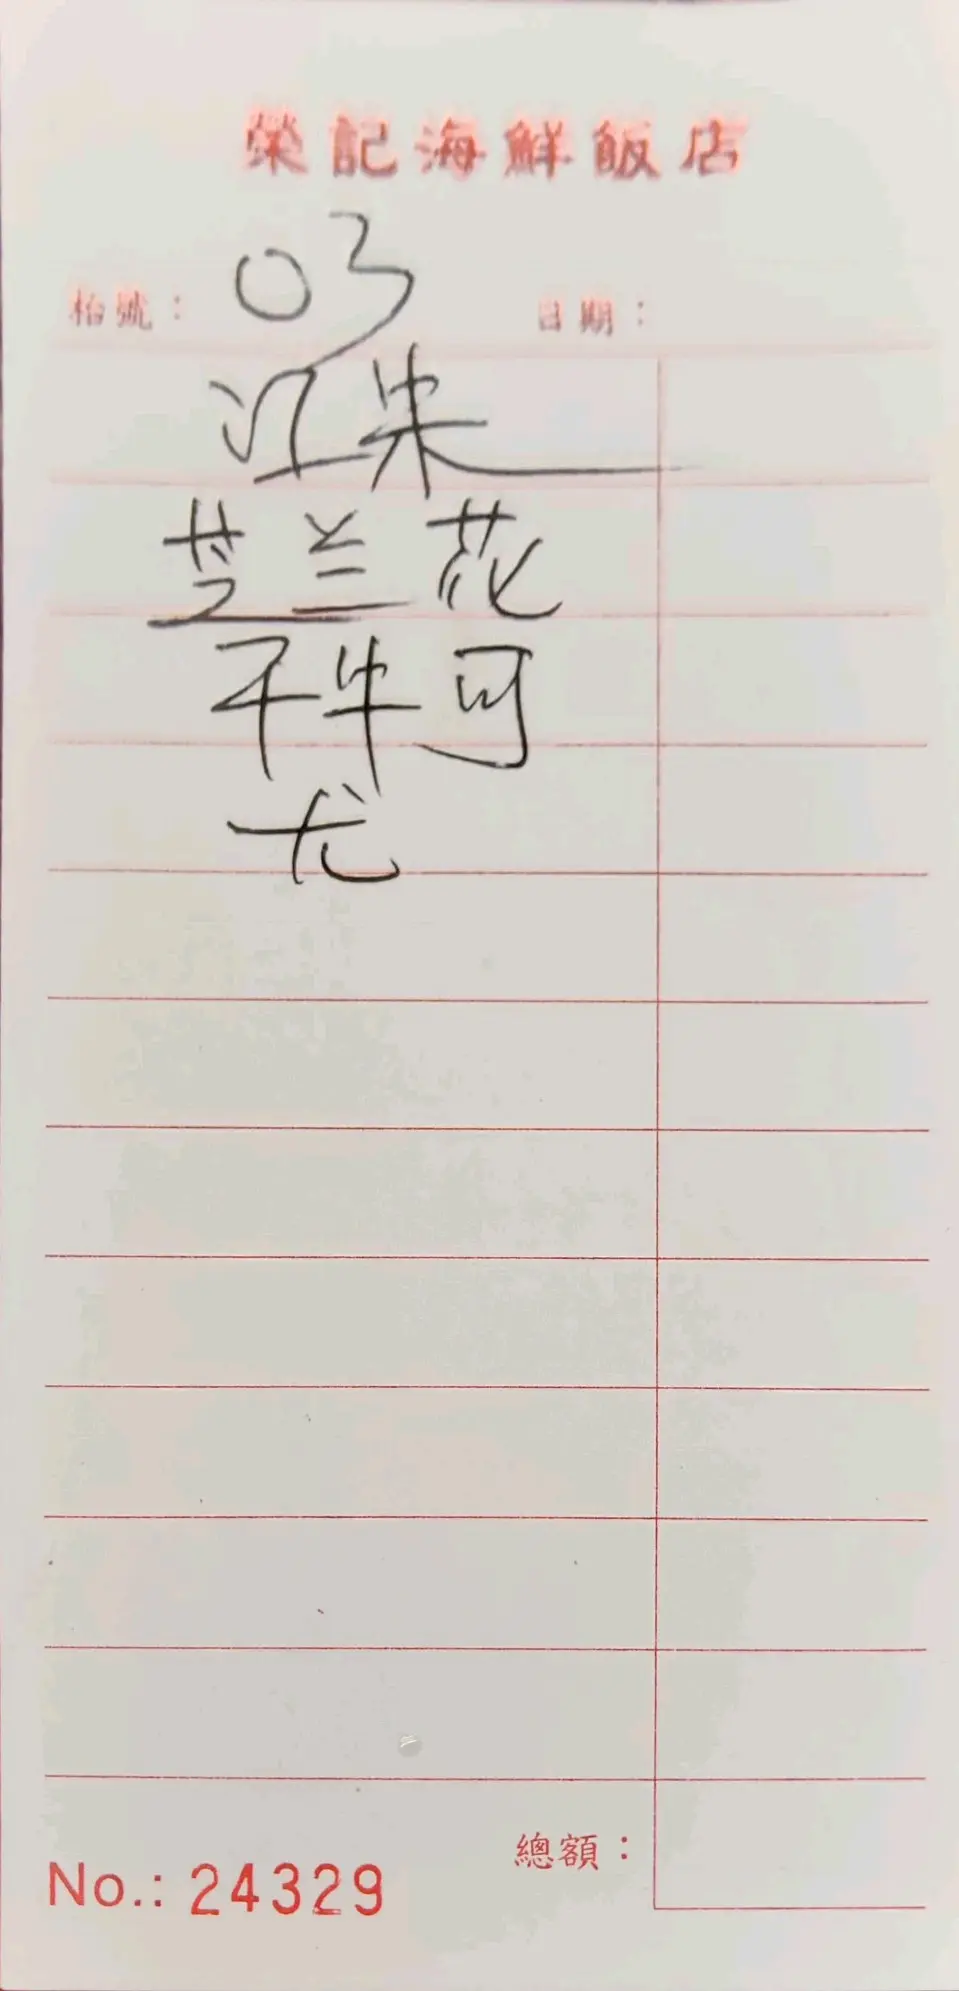 榮記海鮮飯店
枱號： 03 日期：
芝兰花
干牛河
尤
總額：
No.: 24329